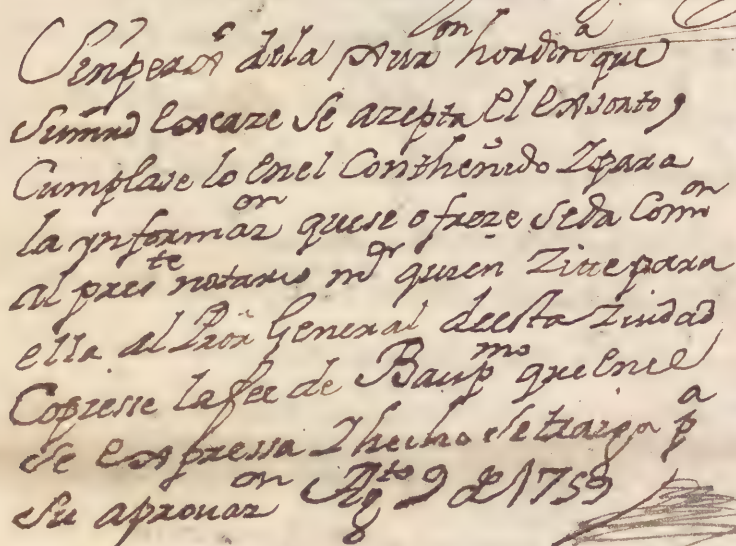 Sin perx^o dela Jurz^on hordin^a que
Su md exerze se azepta el exsorto,
Cumplase lo enel Conthenido Ypara
la ynformaz^on quese ofreze seda Com^on
al pres^te notario m^or quien Zite para
ella al Pror General deesta Ziudad
Copiesse lafee de Baup^mo que enel
se expressa Y hecho setraiga p^a
su aprouaz^on Ag^to 9 de 1759